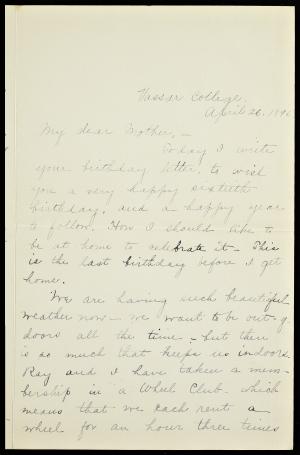 Vassar College.
April 26, 189
My dear Mother, –
Today I write
your birthday letter, to wish
you a very happy sixtieth
birthday, and a happy year
to follow. How I should like to
be at home to celebrate it – This
is the last birthday before I get
home.
We are having such beautiful
weather now – we want to be out-of-
doors all the time – but there
is so much that keeps us indoors.
Ray and I have taken a mem-
bership in a Wheel Club – which
means that we each rent a
wheel for an hour three times